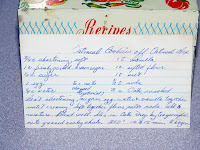 Recipes
Oatmeal Cookies off Oatmeal Box
3/4 shortening, soft 1 t vanilla
1 c firmly packed brown sugar 1 c sifted flour
1/2 c sugar 1 t salt
1 egg 1/2 t soda
1/4 c water 3 c Oats, uncooked
Beat shortening, sugars, egg, water & vanilla together
until creamy. Sift together flour, salt & soda. Add to
mixture. Blend well. Stir in Oats. Drop by teaspoonfuls
onto greased cooky sheets. 350° 12 to 15 min.